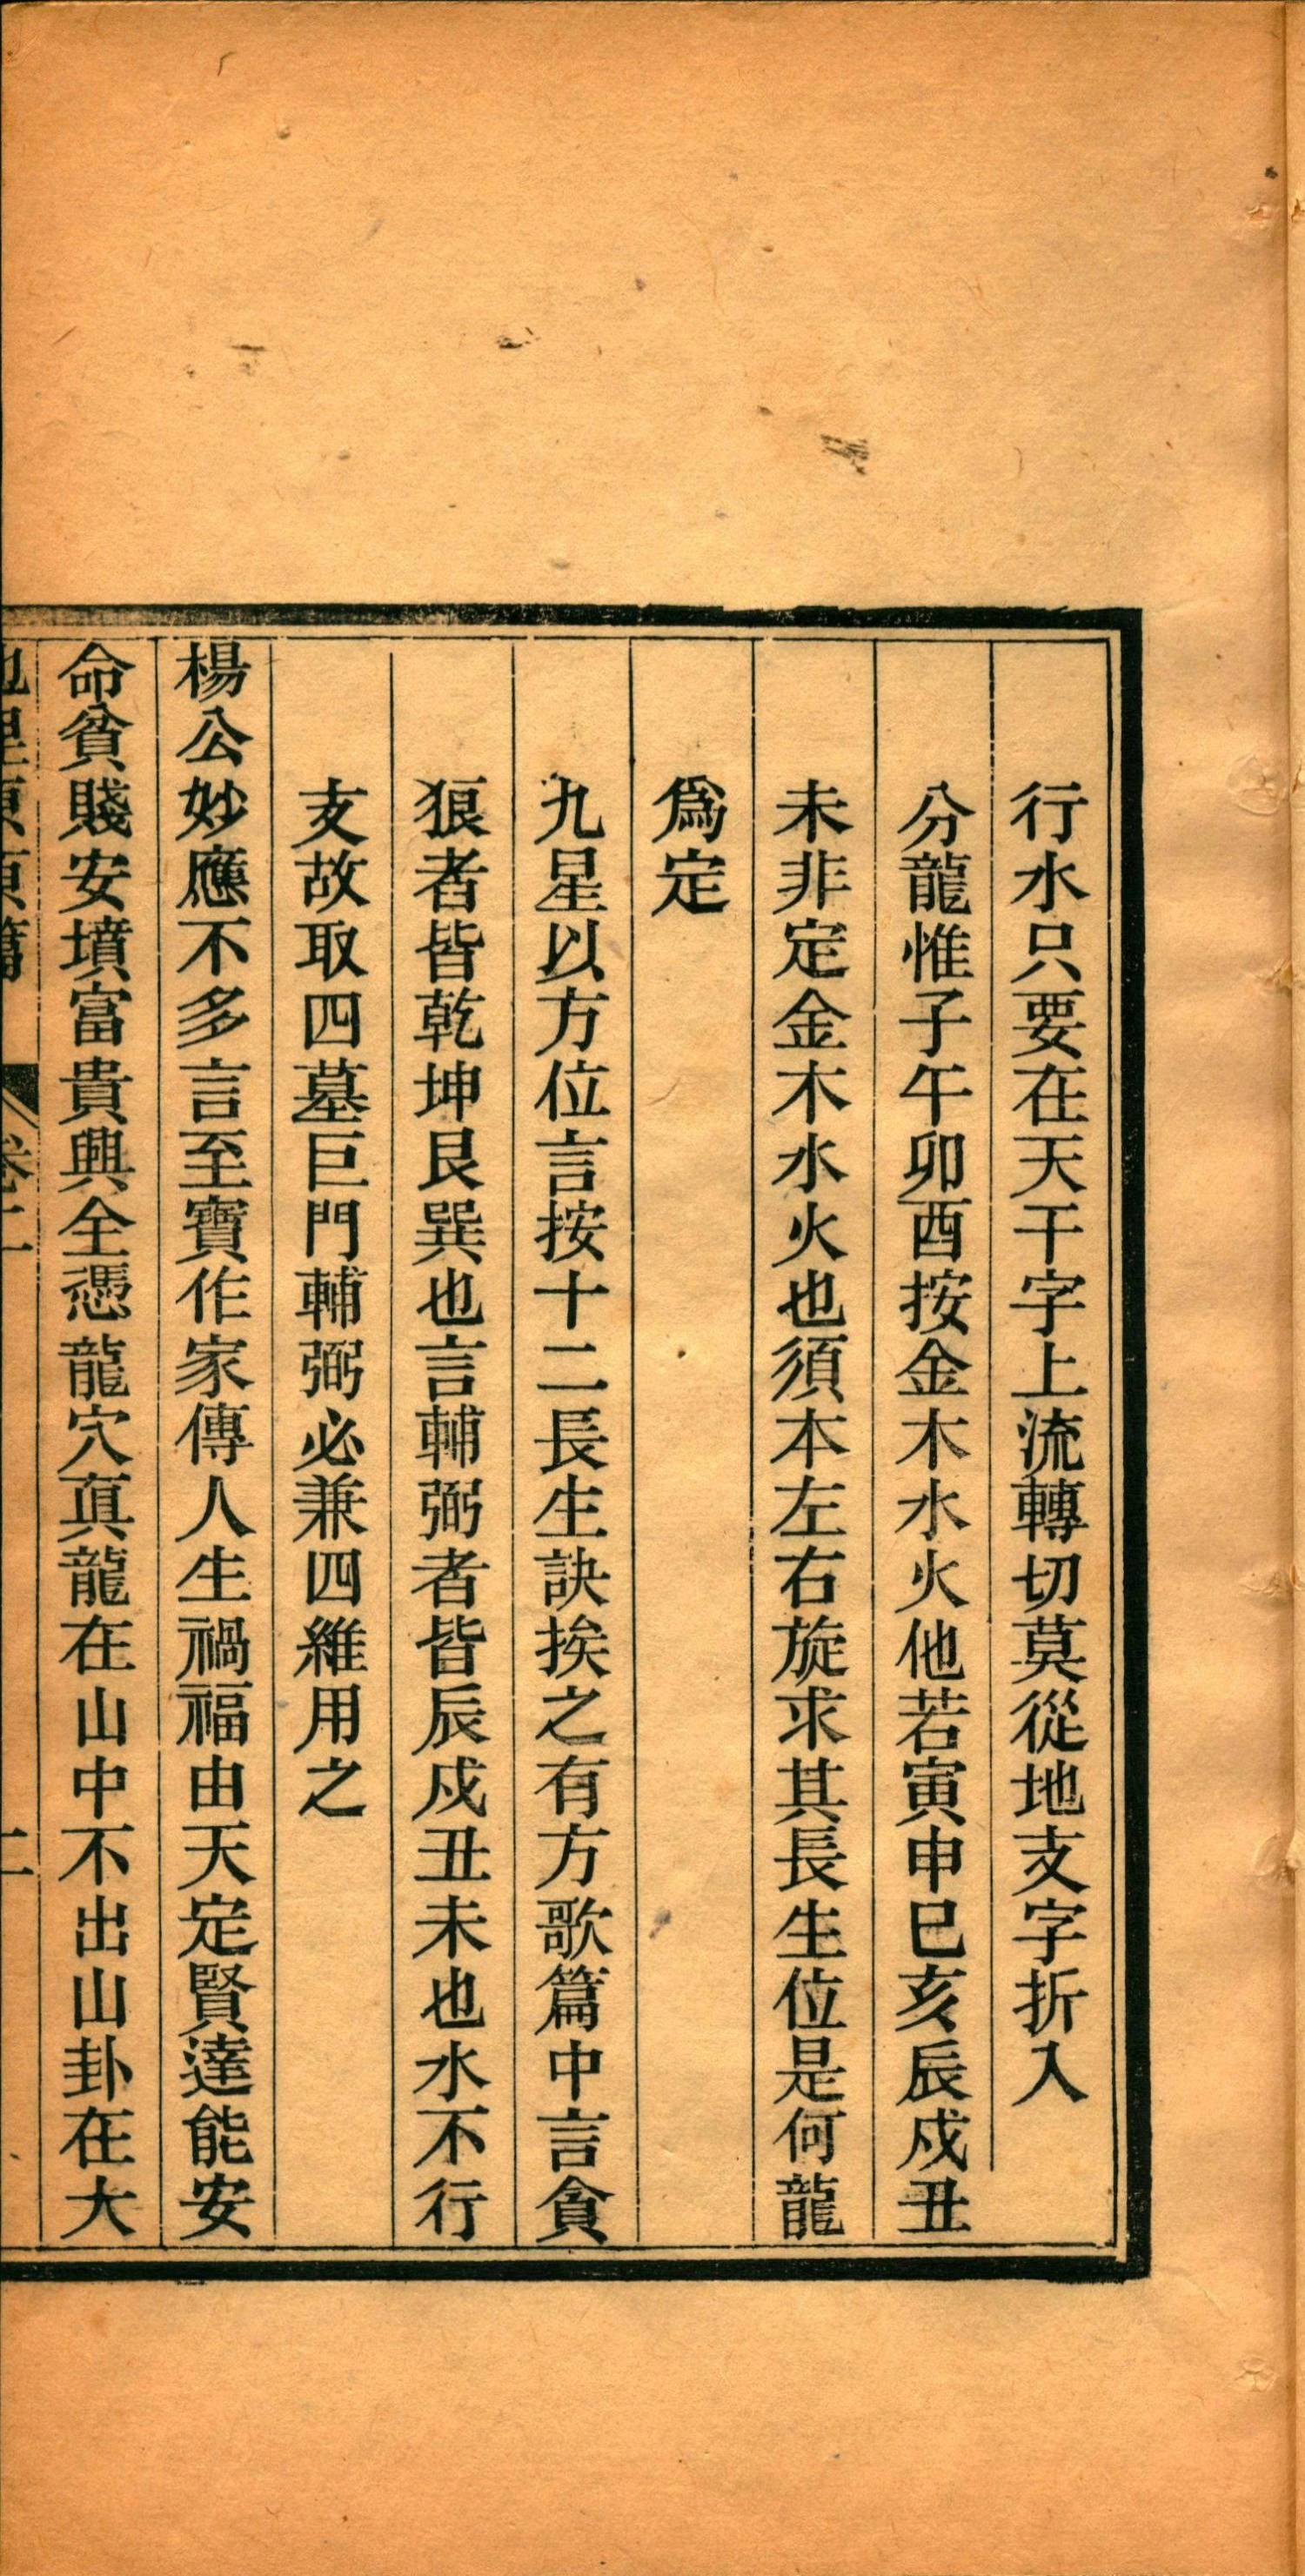 行水只要在天干字上流轉切莫從地支字折入
分龍惟子午卯酉按金木水火他若寅申巳亥辰戍丑
未非定金木水火也須本左右旋求其長生位是何龍
爲定
九星以方位言按十二長生訣挨之有方歌篇中言貪
狼者皆乾坤艮巽也言輔弼者皆辰戍丑未也水不行
支故取四墓巨門輔弼必兼四維用之
楊公妙應不多言至寶作家傳人生禍福由天定賢達能安
命貧賤安墳富貴興全憑龍穴眞龍在山中不出山卦在大